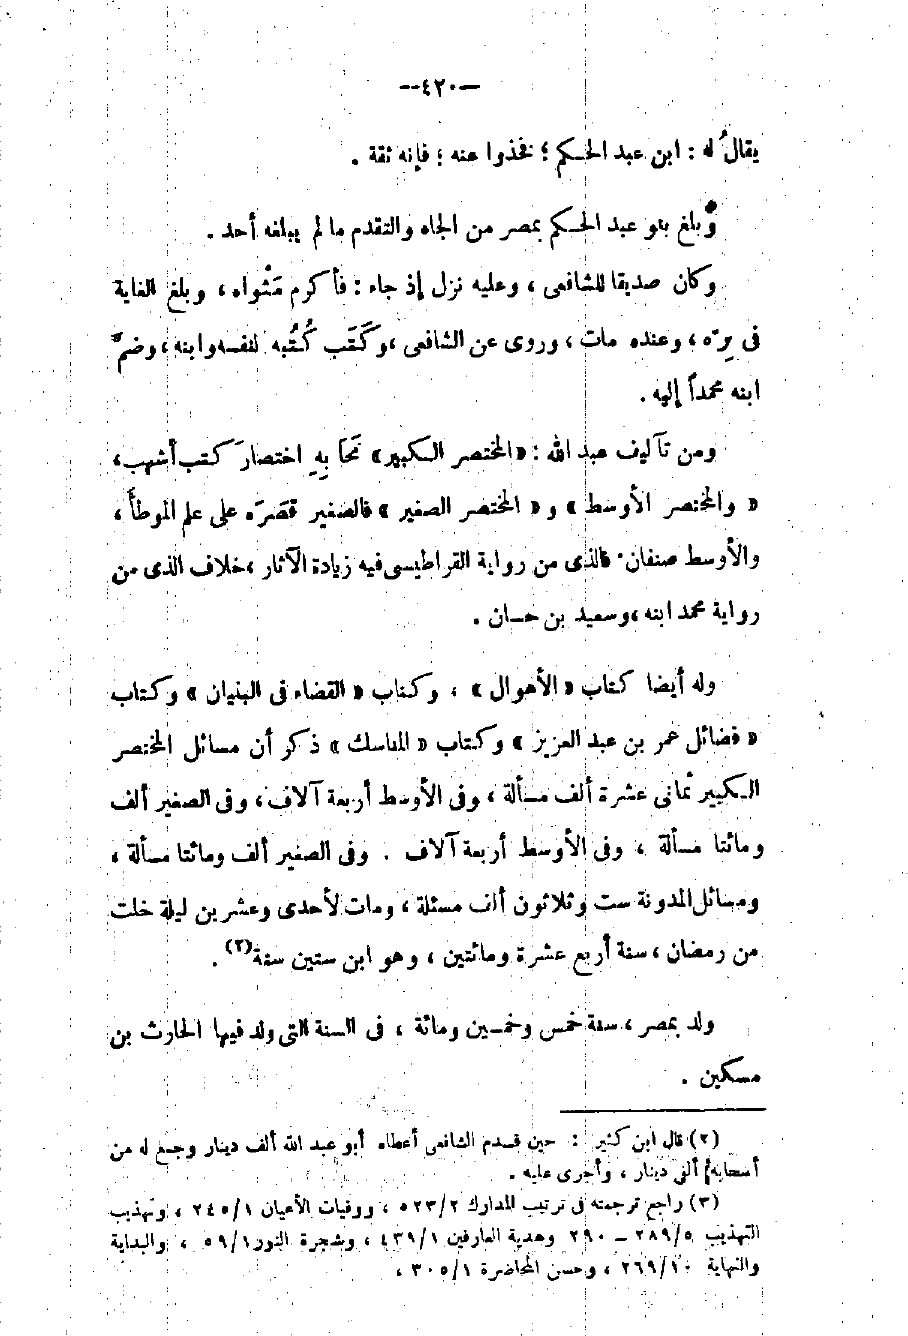 —٤٢٠—
يقالُ له : ابن عبد الحكم ؛ فخذوا عنه ؛ فإنه ثقة .
وبلغ بنو عبد الحكم بمصر من الجاه والتقدم ما لم يبلغه أحد .
وكان صديقا للشافعى ، وعليه نزل إذ جاء : فأكرم مَثْواه ، وبلغ الغاية
فى بِرّه ، وعنده مات ، وروى عن الشافعى ، وكَتَب كُتُبه لنفسه وابنه ، وضمّ
ابنه محمداً إليه .
ومن تآليف عبد الله : «المختصر الكبير» نَحَا بِهِ اختصارَ كتب أشهب ،
« والمختصر الأوسط » و « المختصر الصغير » فالصغير قصَرَه على علم الموطأ ،
والأوسط صنفان . فالذى من رواية القراطيسى فيه زيادة الآثار ، خلاف الذى من
رواية محمد ابنه ، وسعيد بن حسان .
وله أيضا كتاب « الأهوال » ، وكتاب « القضاء فى البنيان » وكتاب
« فضائل عمر بن عبد العزيز » وكتاب « المناسك » ذكر أن مسائل المختصر
الكبير ثمانى عشرة ألف مسألة ، وفى الأوسط أربعة آلاف ، وفى الصغير ألف
ومائتا مسألة ، وفى الأوسط أربعة آلاف . وفى الصغير ألف ومائتا مسألة ،
ومسائل المدونة ست وثلاثون ألف مسئلة ، ومات لأحدى وعشرين ليلة خلت
من رمضان ، سنة أربع عشرة ومائتين ، وهو ابن ستين سنة (٣) .
ولد بمصر ، سنة خمس وخمسين ومائة ، فى السنة التى ولد فيها الحارث بن
مسكين .
(٢) قال ابن كثير : حين قدم الشافعى أعطاه أبو عبد الله ألف دينار وجمع له من
أصحابه ألفى دينار ، وأجرى عليه .
(٣) راجع ترجمته فى ترتيب المدارك ٥٢٣/٢ ، ووفيات الأعيان ٢٤٥/١ ، وتهذيب
التهذيب ٢٨٩/٥ – ٢٩٠ وهدية العارفين ٤٣٩/١ ، وشجرة النور ٥٩/١ ، والبداية
والنهاية ٢٦٩/١٠ ، وحسن المحاضرة ٣٠٥/١ ،